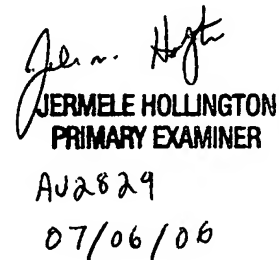 JERMELE HOLLINGTON
PRIMARY EXAMINER
AU2829
07/06/06